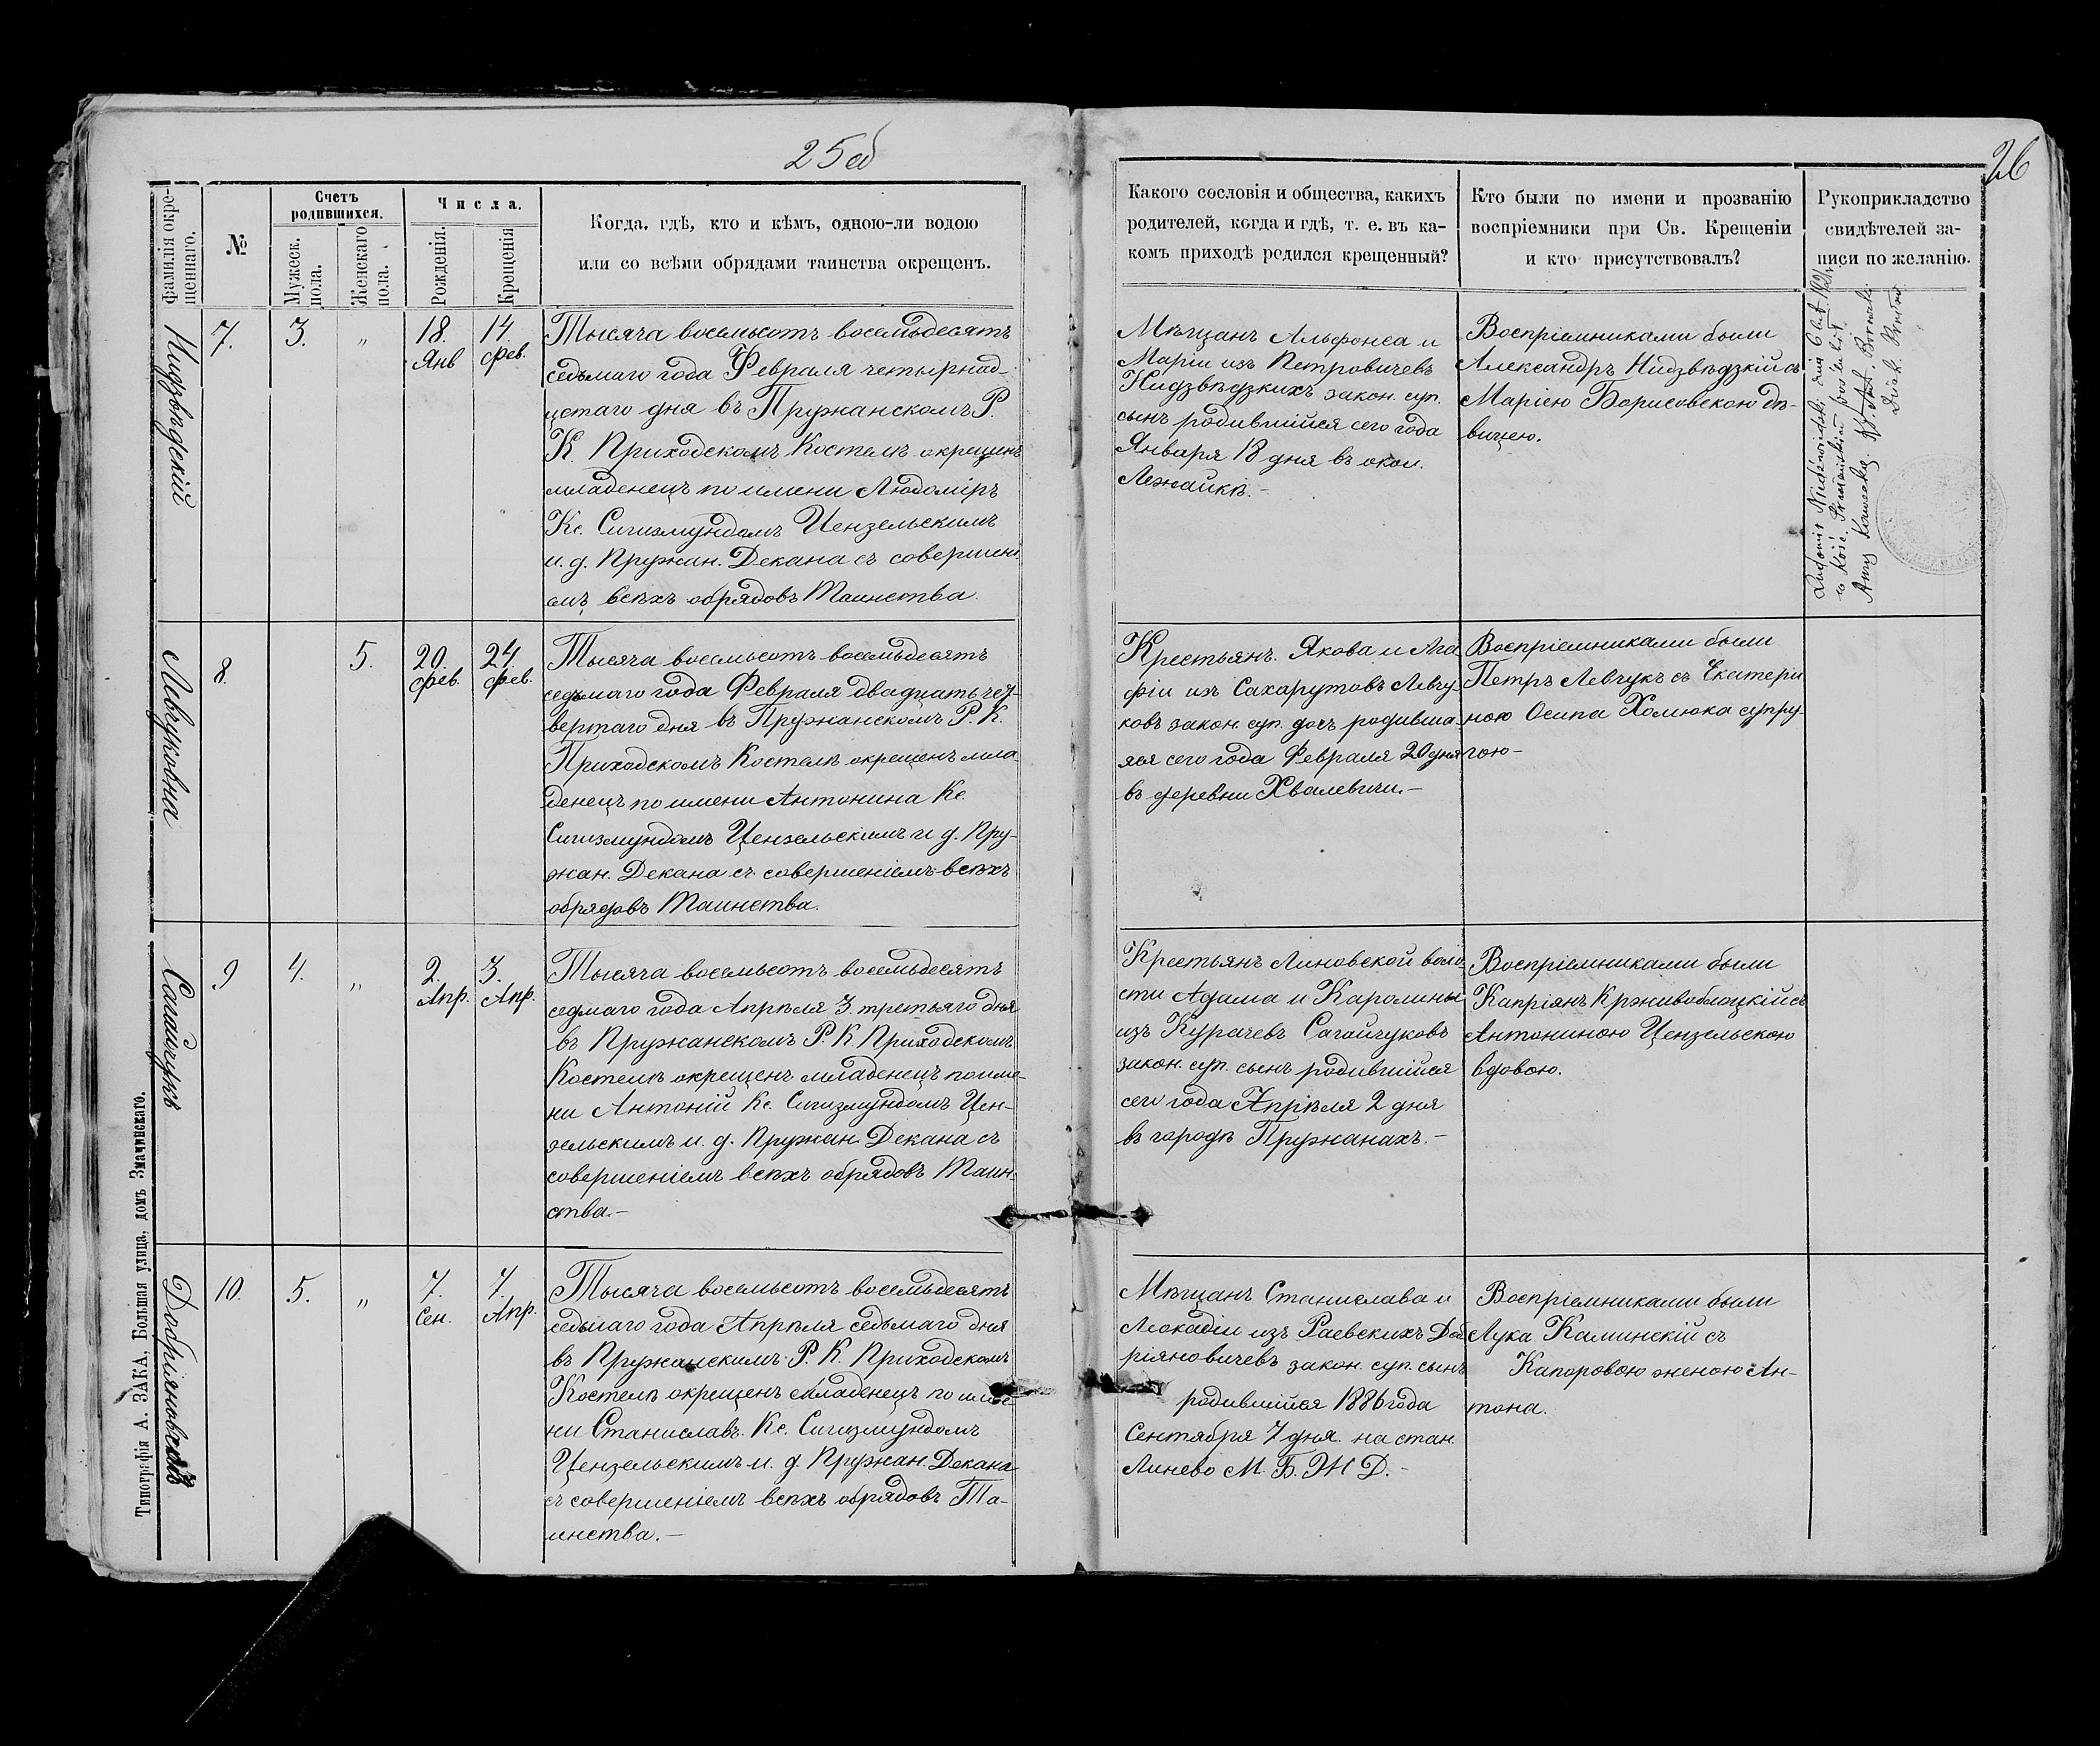 25об
26
Фамилія окре-
щеннаго.
№
Счетъ
родившихся.
Мужеск.
пола.
Женскаго
пола.
Числа.
Рожденія.
Крещенія
Когда, гдѣ, кто и кѣмъ, одною-ли водою
или со всѣми обрядами таинства окрещенъ.
Какого сословія и общества, какихъ
родителей, когда и гдѣ, т. е. въ ка-
комъ приходѣ родился крещенный?
Кто были по имени и прозванію
воспріемники при Св. Крещеніи
и кто присутствовалъ?
Рукоприкладство
свидѣтелей за-
писи по желанію.
Нидзвѣдскій
7.
3.
"
18.
Янв
14.
Фев.
Тысяча восемьсотъ восемьдесятъ
седьмаго года Февраля четырнад-
цетаго дня въ Пружанскомъ Р.
К. Приходскомъ Костелѣ окрещенъ
младенецъ по имени Людоміръ
Кс. Сигизмундомъ Цензельскимъ
и. д. Пружан. Декана съ совершені
емъ всѣхъ обрядовъ Таинства.
Мѣщанъ Альфонса и
Маріи изъ Петровичевъ
Нидзвѣдзкихъ закон. суп.
сынъ родившійся сего года
Января 18 дня въ окол.
Лежайкѣ.-
Воспріемниками были
Александръ Нидзвѣдзкій съ
Маріею Борисовскою дѣ-
вицею.
Левчуковна
8.
5.
20.
Фев.
24.
Фев.
Тысяча восемьсотъ восемьдесятъ
седьмаго года Февраля двадцать чет-
вертаго дня въ Пружанскомъ Р. К.
Приходскомъ Костелѣ окрещенъ мла
денецъ по имени Антонина Кс.
Сигизмундомъ Цензельскимъ и д. Пру-
жан. Декана съ совершеніемъ всѣхъ
обрядовъ Таинства.
Крестьянъ. Якова и Ага
фіи изъ Сахарутовъ Левчу-
ковъ закон. суп. дочь родивша-
яся сего года Февраля 20 дня
въ деревни Хвалевичи.-
Воспріемниками были
Петръ Левчукъ съ Екатери
ною Осипа Хомюка супру-
гою-
Сагайчукъ
9
4.
"
2.
Апр.
3.
Апр.
Тысяча восемьсотъ восемьдесятъ
седмаго года Апрѣля 3. третьяго дня
въ Пружанскомъ Р. К Приходскомъ
Костелѣ окрещенъ младенецъ по име-
ни Антоній Кс. Сигизмундомъ Цен-
зельскимъ и. д. Пружан. Декана съ
совершеніемъ всѣхъ обрядовъ Таин-
ства.-
Крестьянъ Линовской воло-
сти Адама и Каролины
изъ Курачевъ Сагайчуковъ
закон. суп. сынъ родившійся
сего года Апрѣля 2 дня
въ городѣ Пружанахъ.-
Воспріемниками были
Капріянъ Крживоблоцкій съ
Антониною Цензельскою
вдовою.
10.
5.
"
7.
Сен.
7.
Апр.
Тысяча восемьсотъ восемьдесятъ
седьмаго года Апрѣля седьмаго дня
въ Пружанскимъ Р. К. Приходскомъ
Костелѣ окрещенъ младенецъ по име-
ни Станиславъ. Кс. Сигизмундомъ
Цензельскимъ и. д. Пружан. Декана
съ совершеніемъ всѣхъ обрядовъ Та-
инства.-
Мѣщанъ Станислава и
Леокадіи изъ Раевскихъ Доб
ріяновичевъ закон. суп. сынъ
родившійся 1886 года
Сентября 7 дня. на стан.
Линево М. Б. Ж Д.-
Воспріемниками были
Лука Каминскій съ
Капоровою женою Ан-
тона.
Типографія А. ЗАКА, Большая улица, домъ Значинскаго.